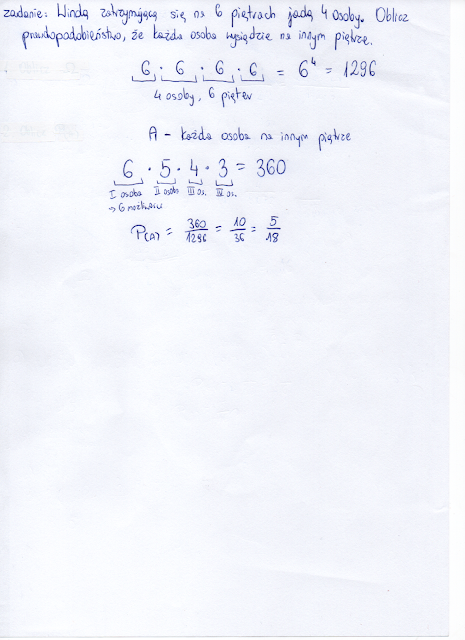 zadanie: Windą zatrzymującą się na 6 piętrach jadą 4 osoby. Oblicz
prawdopodobieństwo, że każda osoba wysiądzie na innym piętrze.
6 · 6 · 6 · 6 = 6⁴ = 1296
4 osoby, 6 pięter
A - każda osoba na innym piętrze
6 · 5 · 4 · 3 = 360
I osoba II osoba III os. IV os.
→ 6 możliwości
P(A) = 360/1296 = 10/36 = 5/18